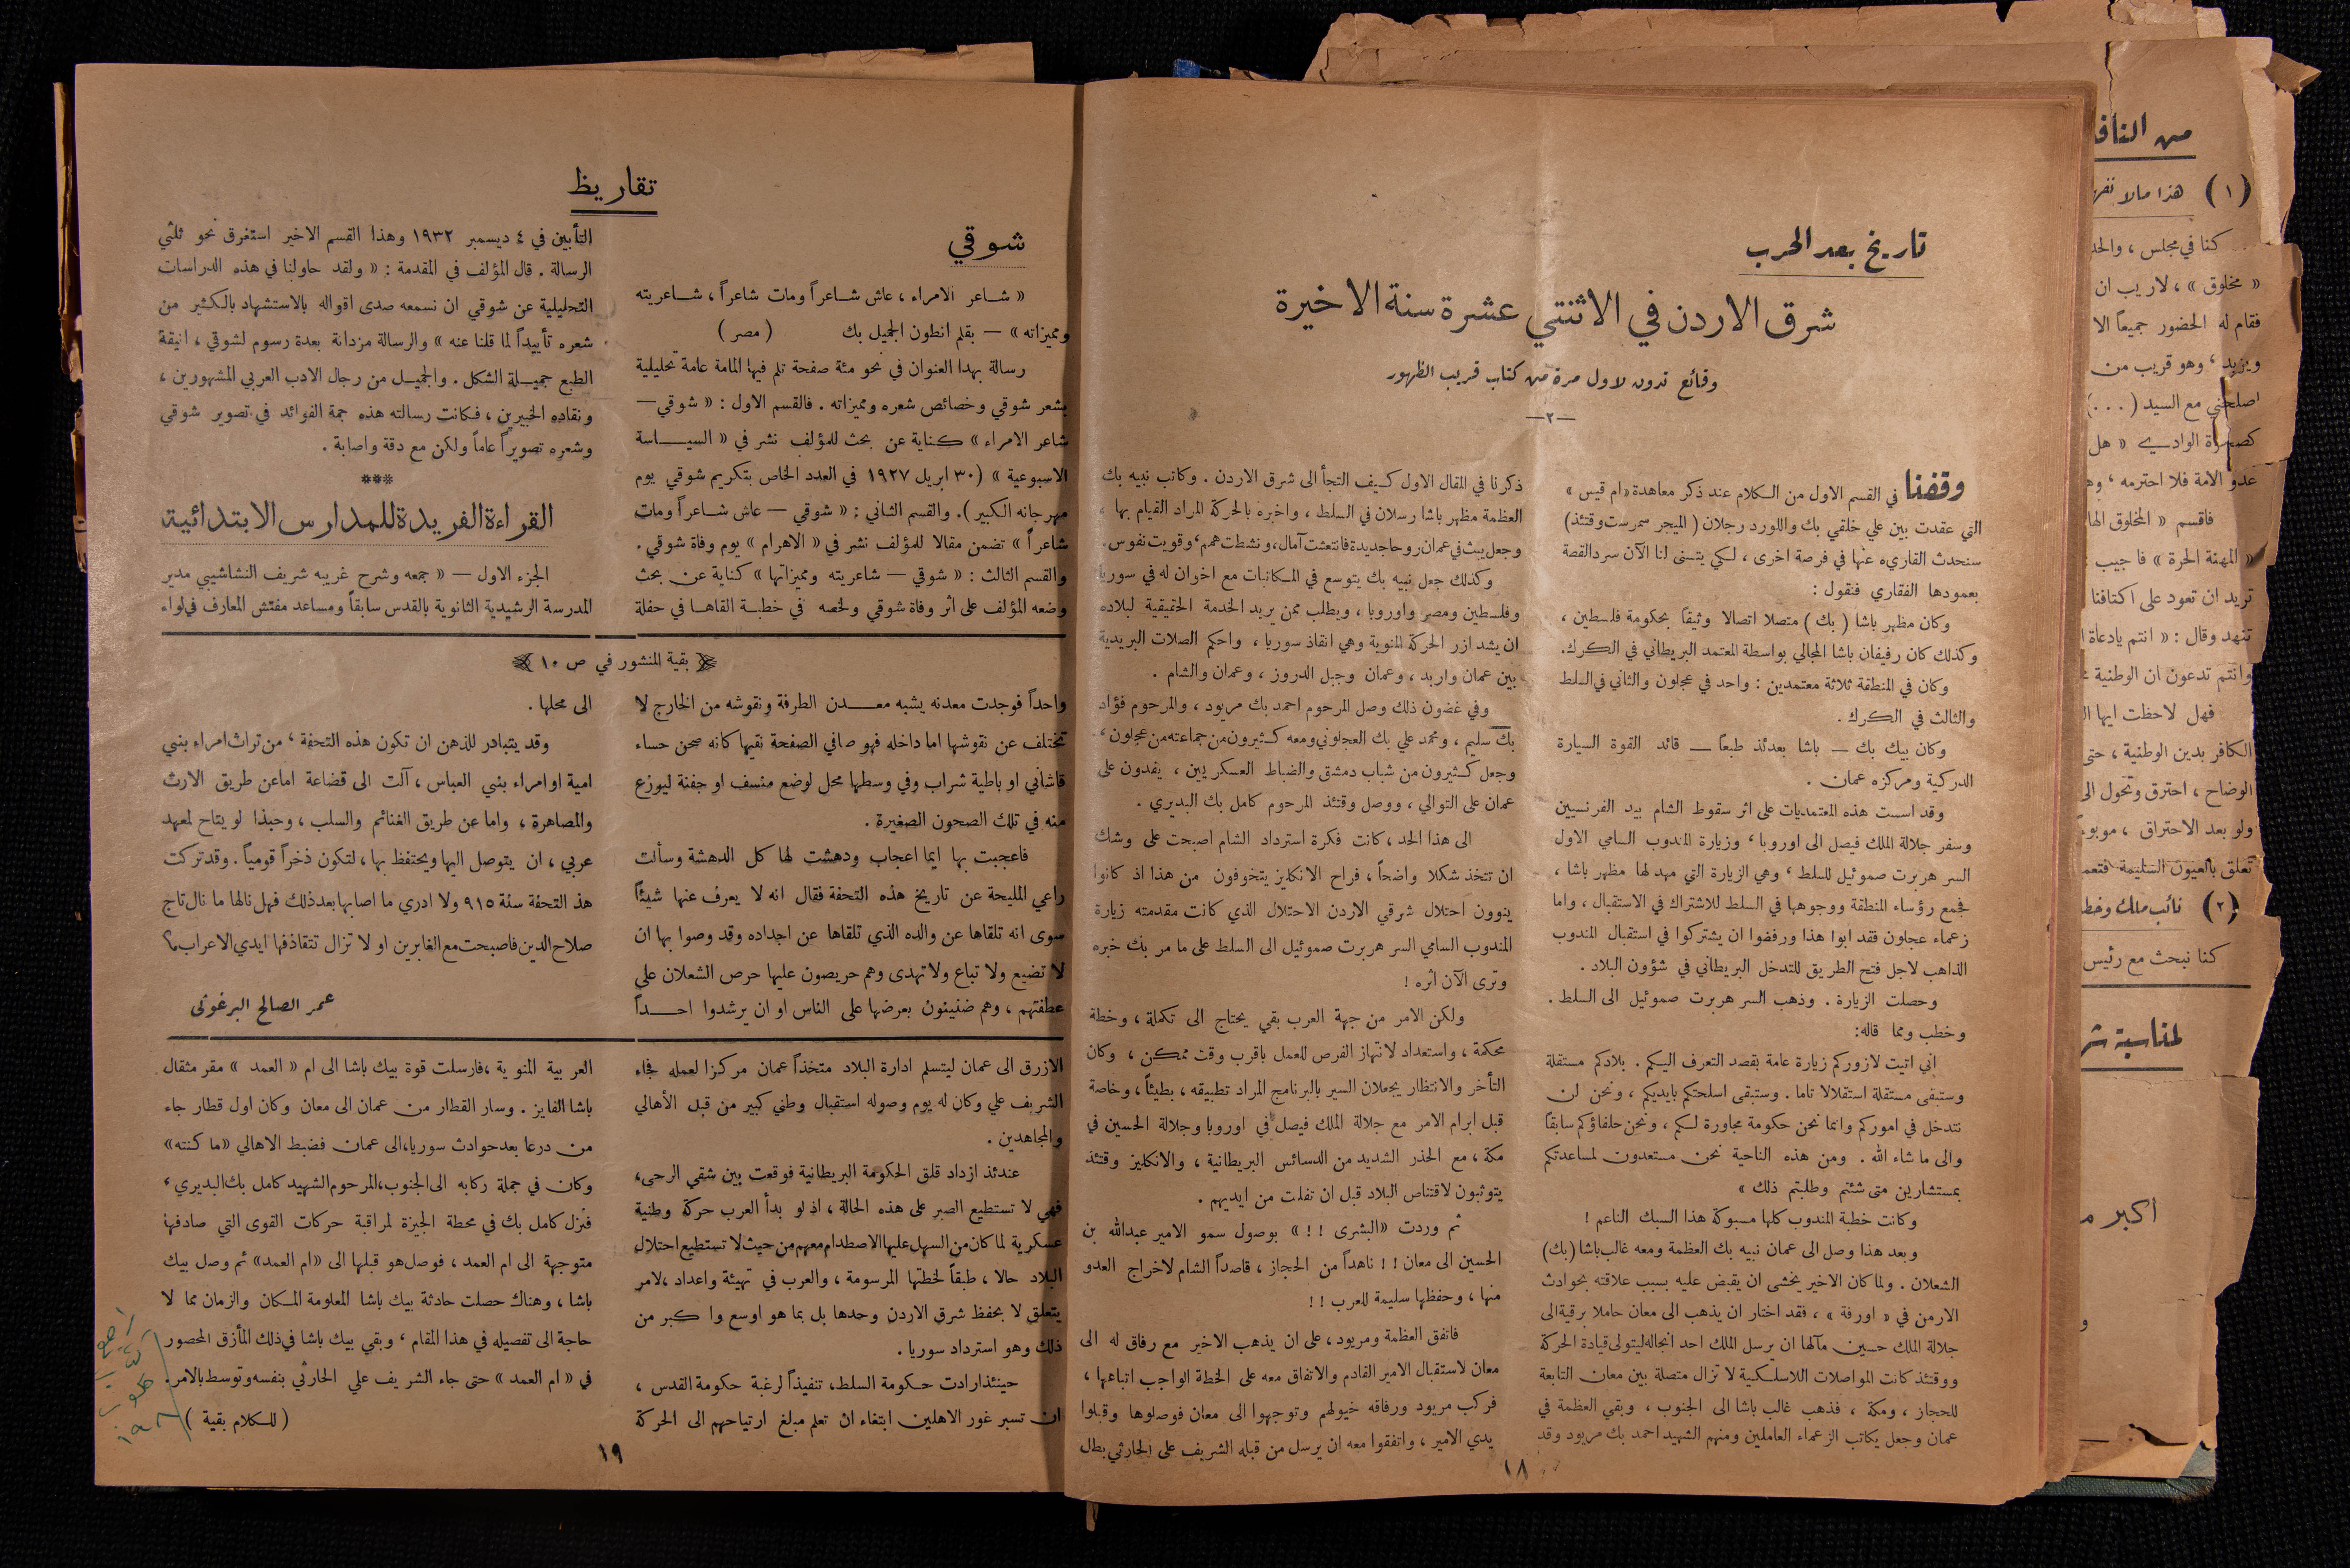 تاريخ بعد الحرب
شرق الاردن في الاثنتي عشرة سنة الاخيرة
وقائع تدون لاول مرة من كتاب قريب الظهور
—٢—
وقفنا في القسم الاول من الكلام عند ذكر معاهدة «ام قيس»
التي عقدت بين علي خلقي بك واللورد رجلان (الميجر سمرست وقتئذ)
سنحدث القاريء عنها في فرصة اخرى ، لكي يتسنى لنا الآن سرد القصة
بعمودها الفقاري فنقول :
وكان مظهر باشا (بك) متصلا اتصالا وثيقاً بحكومة فلسطين ،
وكذلك كان رفيفان باشا المجالي بواسطة المعتمد البريطاني في الكرك.
وكان في المنطقة ثلاثة معتمدين : واحد في عجلون والثاني في السلط
والثالث في الكرك .
وكان بيك بك — باشا بعدئذ طبعاً — قائد القوة السيارة
الدركية ومركزه عمان .
وقد اسست هذه المعتمديات على اثر سقوط الشام بيد الفرنسيين
وسفر جلالة الملك فيصل الى اوروبا ، وزيارة المندوب السامي الاول
السر هربرت صموئيل للسلط ، وهي الزيارة التي مهد لها مظهر باشا ،
فجمع رؤساء المنطقة ووجوهها في السلط للاشتراك في الاستقبال ، واما
زعماء عجلون فقد ابوا هذا ورفضوا ان يشتركوا في استقبال المندوب
الذاهب لاجل فتح الطريق للتدخل البريطاني في شؤون البلاد .
وحصلت الزيارة . وذهب السر هربرت صموئيل الى السلط .
وخطب ومما قاله:
اني اتيت لازوركم زيارة عامة بقصد التعرف اليكم . بلادكم مستقلة
وستبقى مستقلة استقلالا تاما . وستبقى اسلحتكم بايديكم ، ونحن لن
نتدخل في اموركم وانما نحن حكومة مجاورة لكم ، ونحن حلفاؤكم سابقاً
والى ما شاء الله . ومن هذه الناحية نحن مستعدون لمساعدتكم
بمستشارين متى شئتم وطلبتم ذلك »
وكانت خطبة المندوب كلها مسبوكة هذا السبك الناعم !
وبعد هذا وصل الى عمان نبيه بك العظمة ومعه غالب باشا (بك)
الشعلان . ولما كان الاخير يخشى ان يقبض عليه بسبب علاقته بحوادث
الارمن في « اورفة » ، فقد اختار ان يذهب الى معان حاملا برقية الى
جلالة الملك حسين مآلها ان يرسل الملك احد انجاله ليتولى قيادة الحركة
ووقتئذ كانت المواصلات اللاسلكية لا تزال متصلة بين معان التابعة
للحجاز ، ومكة ، فذهب غالب باشا الى الجنوب ، وبقي العظمة في
عمان وجعل يكاتب الزعماء العاملين ومنهم الشهيد احمد بك مريود وقد
ذكرنا في المقال الاول كيف التجأ الى شرق الاردن . وكاتب نبيه بك
العظمة مظهر باشا رسلان في السلط ، واخبره بالحركة المراد القيام بها ،
وجعل يبث في عمان روحا جديدة فانتعشت آمال، ونشطت همم، وقويت نفوس .
وكذلك جعل نبيه بك يتوسع في المكاتبات مع اخوان له في سوريا
وفلسطين ومصر واوروبا ، ويطلب ممن يريد الخدمة الحقيقية لبلاده
ان يشد ازر الحركة المنوية وهي انقاذ سوريا ، واحكم الصلات البريدية
بين عمان واربد ، وعمان وجبل الدروز ، وعمان والشام .
وفي غضون ذلك وصل المرحوم احمد بك مريود ، والمرحوم فؤاد
بك سليم ، ومحمد علي بك العجلوني ومعه كثيرون من جماعته من عجلون ،
وجعل كثيرون من شباب دمشق والضباط العسكريين ، يفدون على
عمان على التوالي ، ووصل وقتئذ المرحوم كامل بك البديري .
الى هذا الحد ، كانت فكرة استرداد الشام اصبحت على وشك
ان تتخذ شكلا واضحاً ، فراح الانكليز يتخوفون من هذا اذ كانوا
ينوون احتلال شرقي الاردن الاحتلال الذي كانت مقدمته زيارة
المندوب السامي السر هربرت صموئيل الى السلط على ما مر بك خبره
وترى الآن اثره !
ولكن الامر من جهة العرب بقي يحتاج الى تكملة ، وخطة
محكمة ، واستعداد لانتهاز الفرص للعمل باقرب وقت ممكن ، وكان
التأخر والانتظار يجعلان السير بالبرنامج المراد تطبيقه ، بطيئاً ، وخاصة
قبل ابرام الامر مع جلالة الملك فيصل في اوروبا وجلالة الحسين في
مكة ، مع الحذر الشديد من الدسائس البريطانية ، والانكليز وقتئذ
يتوثبون لاقتناص البلاد قبل ان تفلت من ايديهم .
ثم وردت «البشرى !!» بوصول سمو الامير عبدالله بن
الحسين الى معان !! ناهداً من الحجاز ، قاصداً الشام لاخراج العدو
منها ، وحفظها سليمة للعرب !!
فاتفق العظمة ومريود ، على ان يذهب الاخير مع رفاق له الى
معان لاستقبال الامير القادم والاتفاق معه على الخطة الواجب اتباعها ،
فركب مريود ورفاقه خيولهم وتوجهوا الى معان فوصلوها وقبلوا
يدي الامير ، واتفقوا معه ان يرسل من قبله الشريف علي الحارثي بطل
١٨
تقاريظ
شوقي
« شاعر الامراء ، عاش شاعراً ومات شاعراً ، شاعريته
ومميزاته » — بقلم انطون الجميل بك (مصر)
رسالة بهذا العنوان في نحو مئة صفحة تلم فيها المامة عامة تحليلية
بشعر شوقي وخصائص شعره ومميزاته . فالقسم الاول : « شوقي —
شاعر الامراء » كناية عن بحث للمؤلف نشر في « السياسة
الاسبوعية » (٣٠ ابريل ١٩٢٧ في العدد الخاص بتكريم شوقي يوم
مهرجانه الكبير). والقسم الثاني : « شوقي — عاش شاعراً ومات
شاعراً » تضمن مقالا للمؤلف نشر في « الاهرام » يوم وفاة شوقي .
والقسم الثالث : « شوقي — شاعريته ومميزاتها » كناية عن بحث
وضعه المؤلف على اثر وفاة شوقي ولخصه في خطبة القاها في حفلة
التأبين في ٤ ديسمبر ١٩٣٢ وهذا القسم الاخير استغرق نحو ثلثي
الرسالة . قال المؤلف في المقدمة : « ولقد حاولنا في هذه الدراسات
التحليلية عن شوقي ان نسمعه صدى اقواله بالاستشهاد بالكثير من
شعره تأييداً لما قلنا عنه » والرسالة مزدانة بعدة رسوم لشوقي ، انيقة
الطبع جميلة الشكل . والجميل من رجال الادب العربي المشهورين ،
ونقاده الخبيرين ، فكانت رسالته هذه جمة الفوائد في تصوير شوقي
وشعره تصويراً عاماً ولكن مع دقة واصابة .
***
القراءة الفريدة للمدارس الابتدائية
الجزء الاول — « جمعه وشرح غريبه شريف النشاشيبي مدير
المدرسة الرشيدية الثانوية بالقدس سابقاً ومساعد مفتش المعارف في لواء
بقية المنشور في ص ١٠
واحداً فوجدت معدنه يشبه معدن الطرفة ونقوشه من الخارج لا
تختلف عن نقوشها اما داخله فهو صافي الصفحة نقيها كانه صحن حساء
قاشاني او باطية شراب وفي وسطها محل لوضع منسف او جفنة ليوزع
منه في تلك الصحون الصغيرة .
فاعجبت بها ايما اعجاب ودهشت لها كل الدهشة وسألت
راعي المليحة عن تاريخ هذه التحفة فقال انه لا يعرف عنها شيئاً
سوى انه تلقاها عن والده الذي تلقاها عن اجداده وقد وصوا بها ان
لا تضيع ولا تباع ولا تهدى وهم حريصون عليها حرص الشعلان على
عطفتهم ، وهم ضنينون بعرضها على الناس او ان يرشدوا احداً
الى محلها .
وقد يتبادر للذهن ان تكون هذه التحفة ، من تراث امراء بني
امية او امراء بني العباس ، آلت الى قضاعة اما عن طريق الارث
والمصاهرة ، واما عن طريق الغنائم والسلب ، وحبذا لو يتاح لمعهد
عربي ، ان يتوصل اليها ويحتفظ بها ، لتكون ذخراً قومياً . وقد تركت
هذ التحفة سنة ٩١٥ ولا ادري ما اصابها بعد ذلك فهل نالها ما نال تاج
صلاح الدين فاصبحت مع الغابرين او لا تزال تتقاذفها ايدي الاعراب ؟
عمر الصالح البرغوثي
الازرق الى عمان ليتسلم ادارة البلاد متخذاً عمان مركزا لعمله فجاء
الشريف علي وكان له يوم وصوله استقبال وطني كبير من قبل الأهالي
والمجاهدين .
عندئذ ازداد قلق الحكومة البريطانية فوقعت بين شقي الرحى ،
فهي لا تستطيع الصبر على هذه الحالة ، اذ لو بدأ العرب حركة وطنية
عسكرية لما كان من السهل عليها الاصطدام معهم من حيث لا تستطيع احتلال
البلاد حالا ، طبقاً لخطتها المرسومة ، والعرب في تهيئة واعداد ، لامر
يتعلق لا بحفظ شرق الاردن وحدها بل بما هو اوسع واكبر من
ذلك وهو استرداد سوريا .
حينئذ ارادت حكومة السلط ، تنفيذاً لرغبة حكومة القدس ،
ان تسبر غور الاهلين ابتغاء ان تعلم مبلغ ارتياحهم الى الحركة
العربية المنوية ، فارسلت قوة بيك باشا الى ام « العمد » مقر مثقال
باشا الفايز . وسار القطار من عمان الى معان وكان اول قطار جاء
من درعا بعد حوادث سوريا ، الى عمان فضبط الاهالي «ماكنته»
وكان في جملة ركابه الى الجنوب ، المرحوم الشهيد كامل بك البديري ،
فنزل كامل بك في محطة الجيزة لمراقبة حركات القوى التي صادفها
متوجهة الى ام العمد ، فوصل هو قبلها الى «ام العمد» ثم وصل بيك
باشا ، وهناك حصلت حادثة بيك باشا المعلومة المكان والزمان مما لا
حاجة الى تفصيله في هذا المقام ، وبقي بيك باشا في ذلك المأزق المحصور
في « ام العمد » حتى جاء الشريف علي الحارثي بنفسه وتوسط بالامر.
(للكلام بقية)
١٩
من النافذ
(١) هذا مالا نفه
كنا في مجلس ، والحد
« مخلوق » ، لا ريب ان
فقام له الحضور جميعاً الا
ويزيد ، وهو قريب من
اصلحني مع السيد (...)
كصخرة الوادي « هل
عدو الامة فلا احترمه ، وه
فاقسم « المخلوق الها
« المهنة الحرة » فاجيب :
تريد ان تعود على اكتافنا
تنهد وقال : « انتم يا دعاة ا
وانتم تدعون ان الوطنية
فهل لاحظت ايها ال
الكافر بدين الوطنية ، حتى
الوضاح ، احترق وتحول الى
ولو بعد الاحتراق ، موبوء
تعلق بالعيون السليمة فتعم
(٢) نائب ملك وخط
كنا نبحث مع رئيس
لمناسبة شر
أكبر م
و